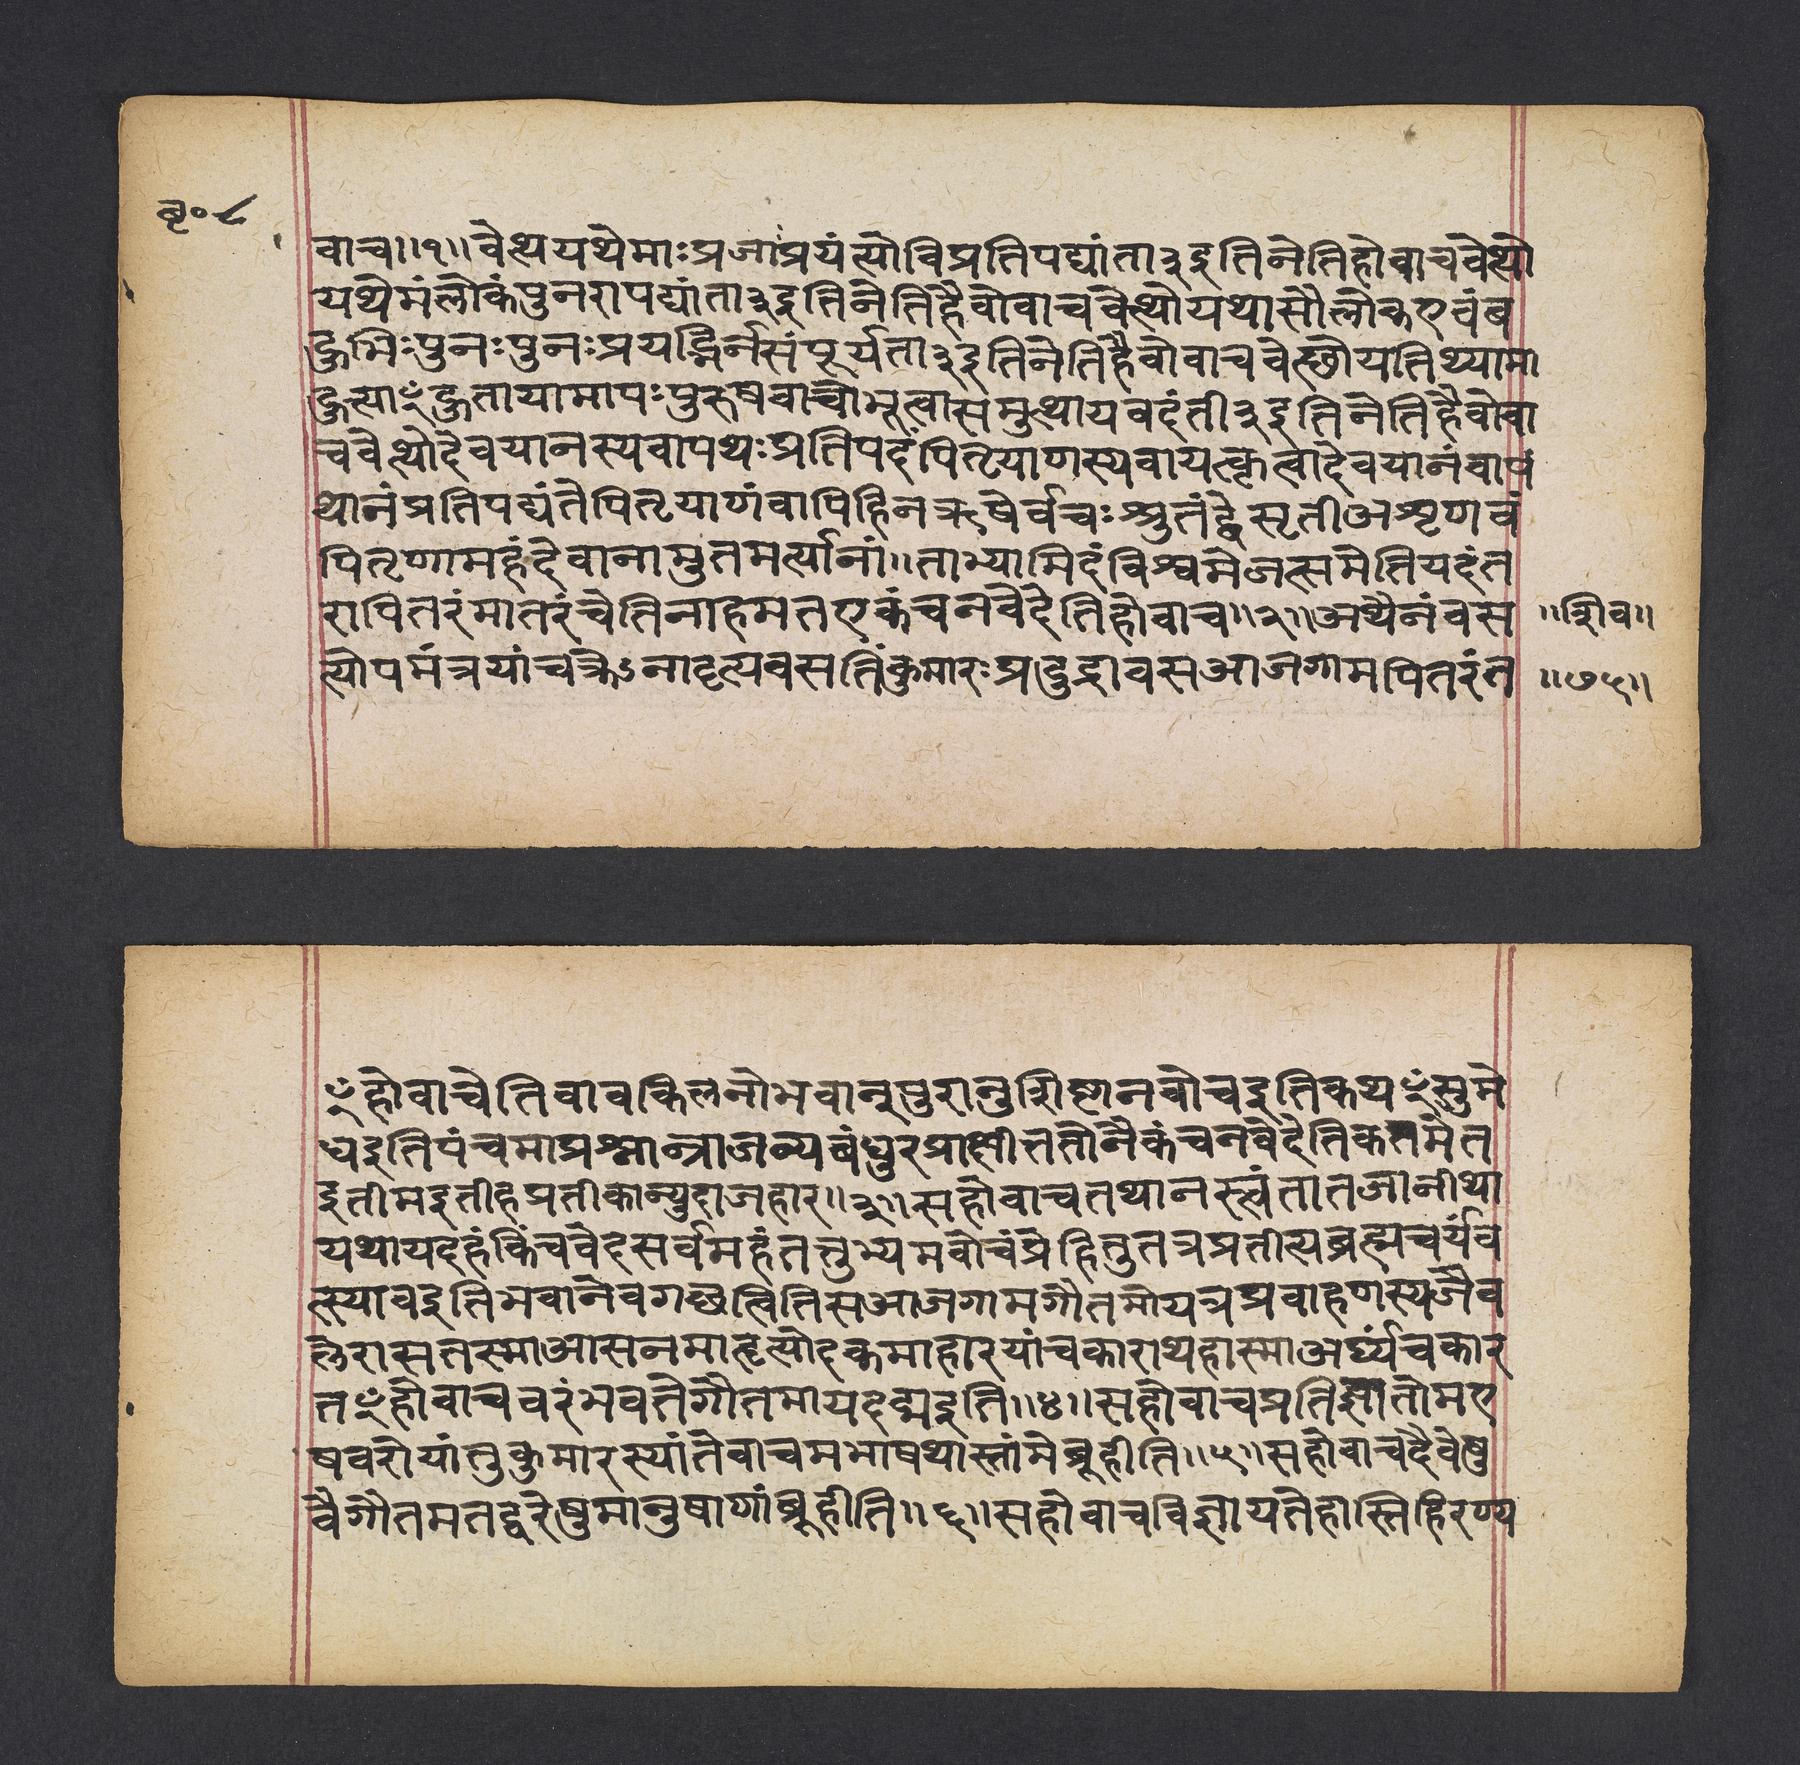 बृ०८
वाच॥१॥वेत्थयथेमाःप्रजाःप्रयंत्योविप्रतिपद्यांता३इतिनेतिहोवाचवेत्थो
यथेमंलोकंपुनरापद्यांता३इतिनेतिहैवोवाचवेत्थोयथासौलोकएवंब
हुभिःपुनःपुनःप्रयद्भिर्नसंपूर्यता३इतिनेतिहैवोवाचवेत्थोयतिथ्यामा
हुत्याꣳहुतायामापःपुरुषवाचोभूत्वासमुत्थायवदंती३इतिनेतिहैवोवा
चवेत्थोदेवयानस्यवापथःप्रतिपदंपितृयाणस्यवायत्कृत्वादेवयानंवापं
थानंप्रतिपद्यंतेपितृयाणंवापिहिनऋषेर्वचःश्रुतंद्वेसृतीअशृणवं
पितृणामहंदेवानामुतमर्त्यानां॥ताभ्यामिदंविश्वमेजत्समेतियदंत
रापितरंमातरंचेतिनाहमतएकंचनवेदेतिहोवाच॥२॥अथैनंवस
॥शिव॥
त्योपमंत्रयांचक्रेऽनादृत्यवसतिंकुमारःप्रदुद्रावसआजगामपितरंत
॥७५॥
ꣳहोवाचेतिवावकिलनोभवान्पुरानुशिष्टानवोचइतिकथꣳसुमे
धइतिपंचमाप्रश्नान्राजन्यबंधुरप्राक्षीत्ततोनैकंचनवेदेतिकतमेत
इतीमइतीहप्रतीकान्युदाजहार॥३॥सहोवाचतथानस्त्वंतातजानीथा
यथायदहंकिंचवेदसर्वमहंतत्तुभ्यमवोचंप्रेहितुतत्रप्रतीत्यब्रह्मचर्यंव
त्स्यावइतिभवानेवगच्छत्वितिसआजगामगौतमोयत्रप्रवाहणस्यजैव
लेरासतस्माआसनमाहृत्योदकमाहारयांचकाराथहास्माअर्घ्यंचकार
तꣳहोवाचवरंभवतेगौतमायदद्मइति॥४॥सहोवाचप्रतिज्ञातोमए
षवरोयांतुकुमारस्यांतेवाचमभाषथास्तांमेब्रूहीति॥५॥सहोवाचदैवेषु
वैगौतमतद्वरेषुमानुषाणांब्रूहीति॥६॥सहोवाचविज्ञायतेहास्तिहिरण्य